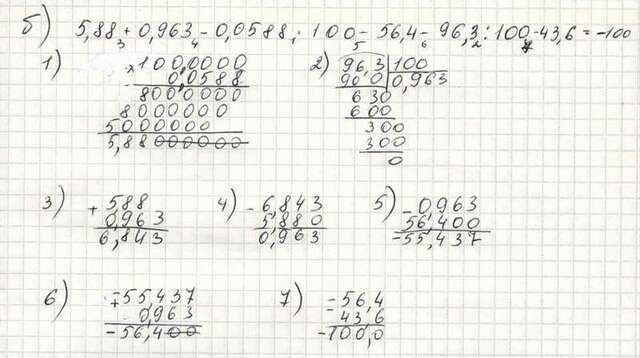 б) 5,88 + 0,963 - 0,0588 · 100 - 56,4 - 96,3 : 100 - 43,6 = -100
3 4 5 6 2 7
1) × 100,0000
0,0588
8000000
8000000
5000000
5,88000000
2) 96,3 | 100
90 0 | 0,963
630
600
300
300
0
3) + 588
0,963
6,843
4) - 6,843
5,880
0,963
5) - 0,963
56,400
-55,437
6) -55,437
+ 0,963
-56,400
7) -56,4
- 43,6
-100,0